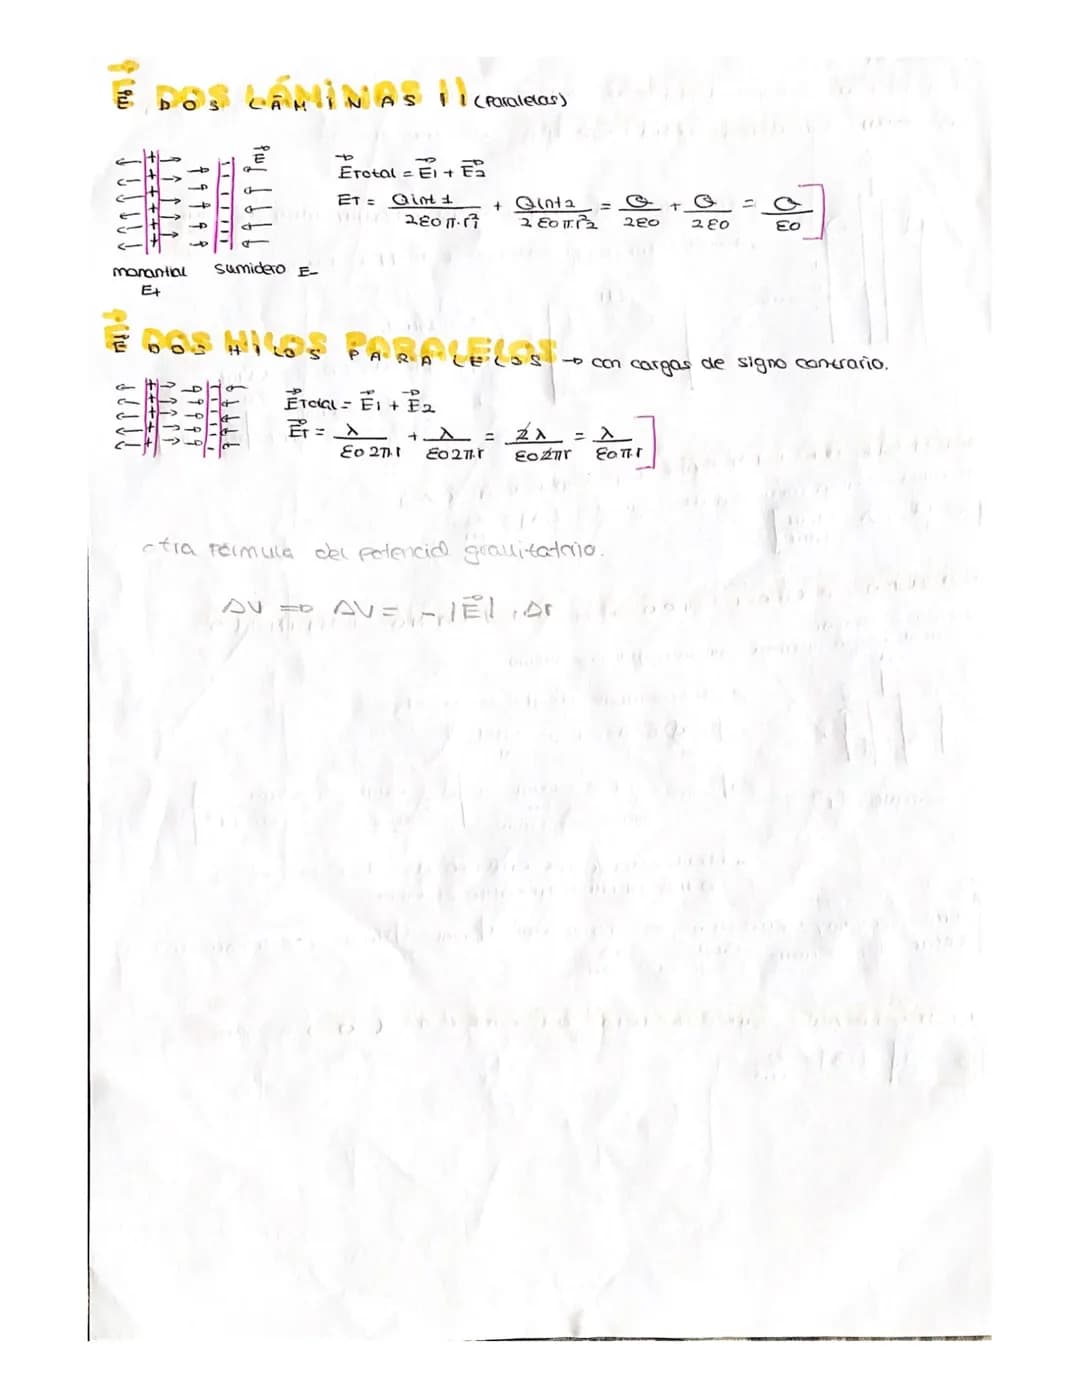 E⃗ DOS LÁMINAS || (Paralelas)
E⃗
E⃗total = E⃗1 + E⃗2
ET = Qint 1 / 2ε0 π·r1² + Qint2 / 2 ε0 π·r2² = σ / 2ε0 + σ / 2ε0 = σ / ε0
manantial E+
sumidero E-
E⃗ DOS HILOS PARALELOS → con cargas de signo contrario.
E⃗Total = E⃗1 + E⃗2
E⃗T = λ / ε0 2π·r + λ / ε0 2π·r = 2λ / ε0 2πr = λ / ε0 π·r
otra fórmula del potencial gravitatorio.
ΔV ⇒ ΔV = -|E⃗| · Δr